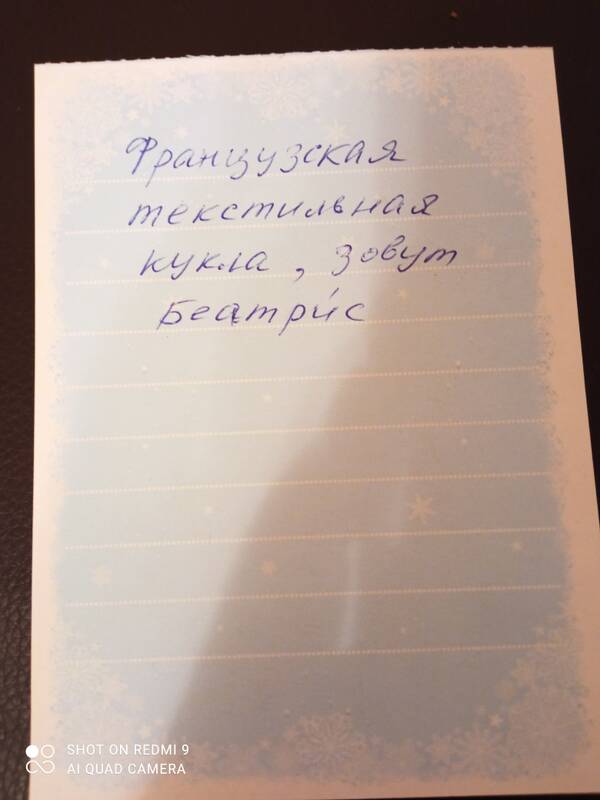 Французская
текстильная
кукла, зовут
Беатри́с
SHOT ON REDMI 9
AI QUAD CAMERA